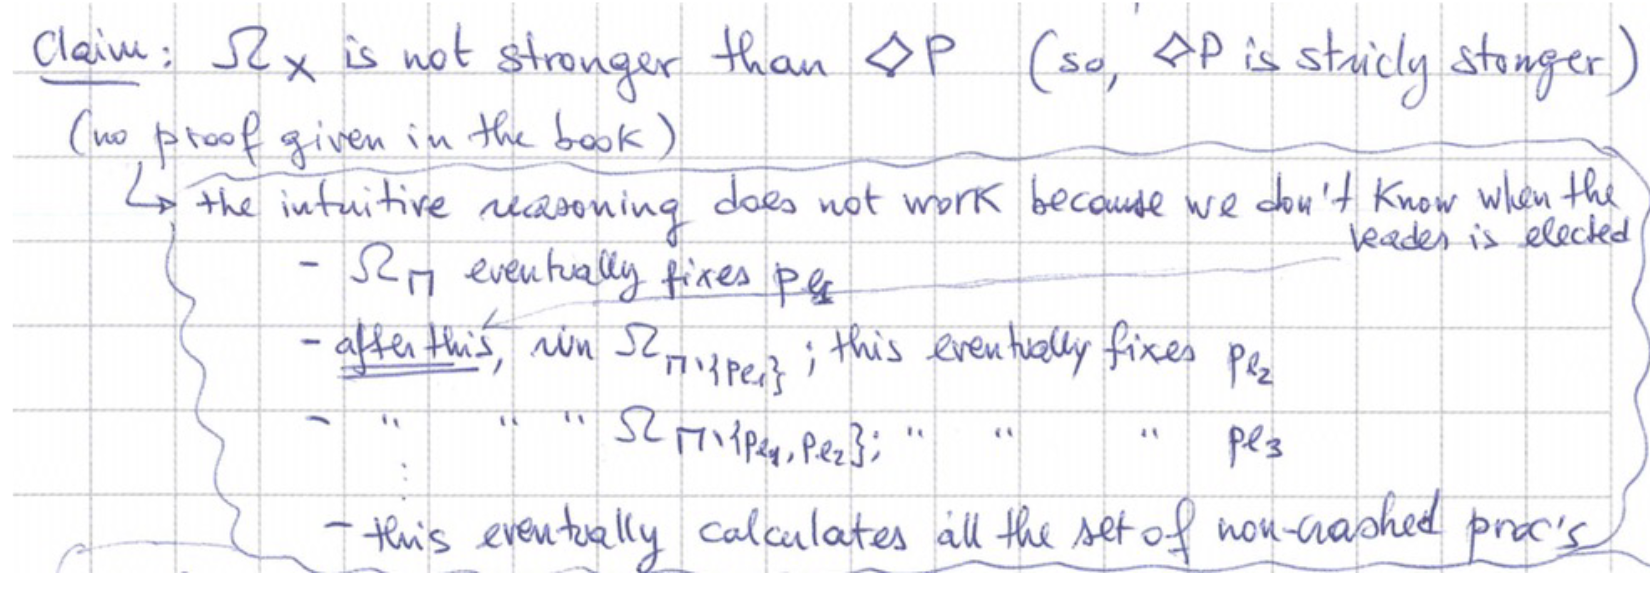 Claim: Ωx is not stronger than ◇P (so, ◇P is stricly stonger)
(no proof given in the book)
↳ the intuitive reasoning does not work because we don't know when the
leader is elected
- Ω_Π eventually fixes p_ℓ1
- after this, run Ω_Π\{p_ℓ1}; this eventually fixes p_ℓ2
- " " " Ω_Π\{p_ℓ1, p_ℓ2}; " " " p_ℓ3
⋮
- this eventually calculates all the set of non-crashed proc's